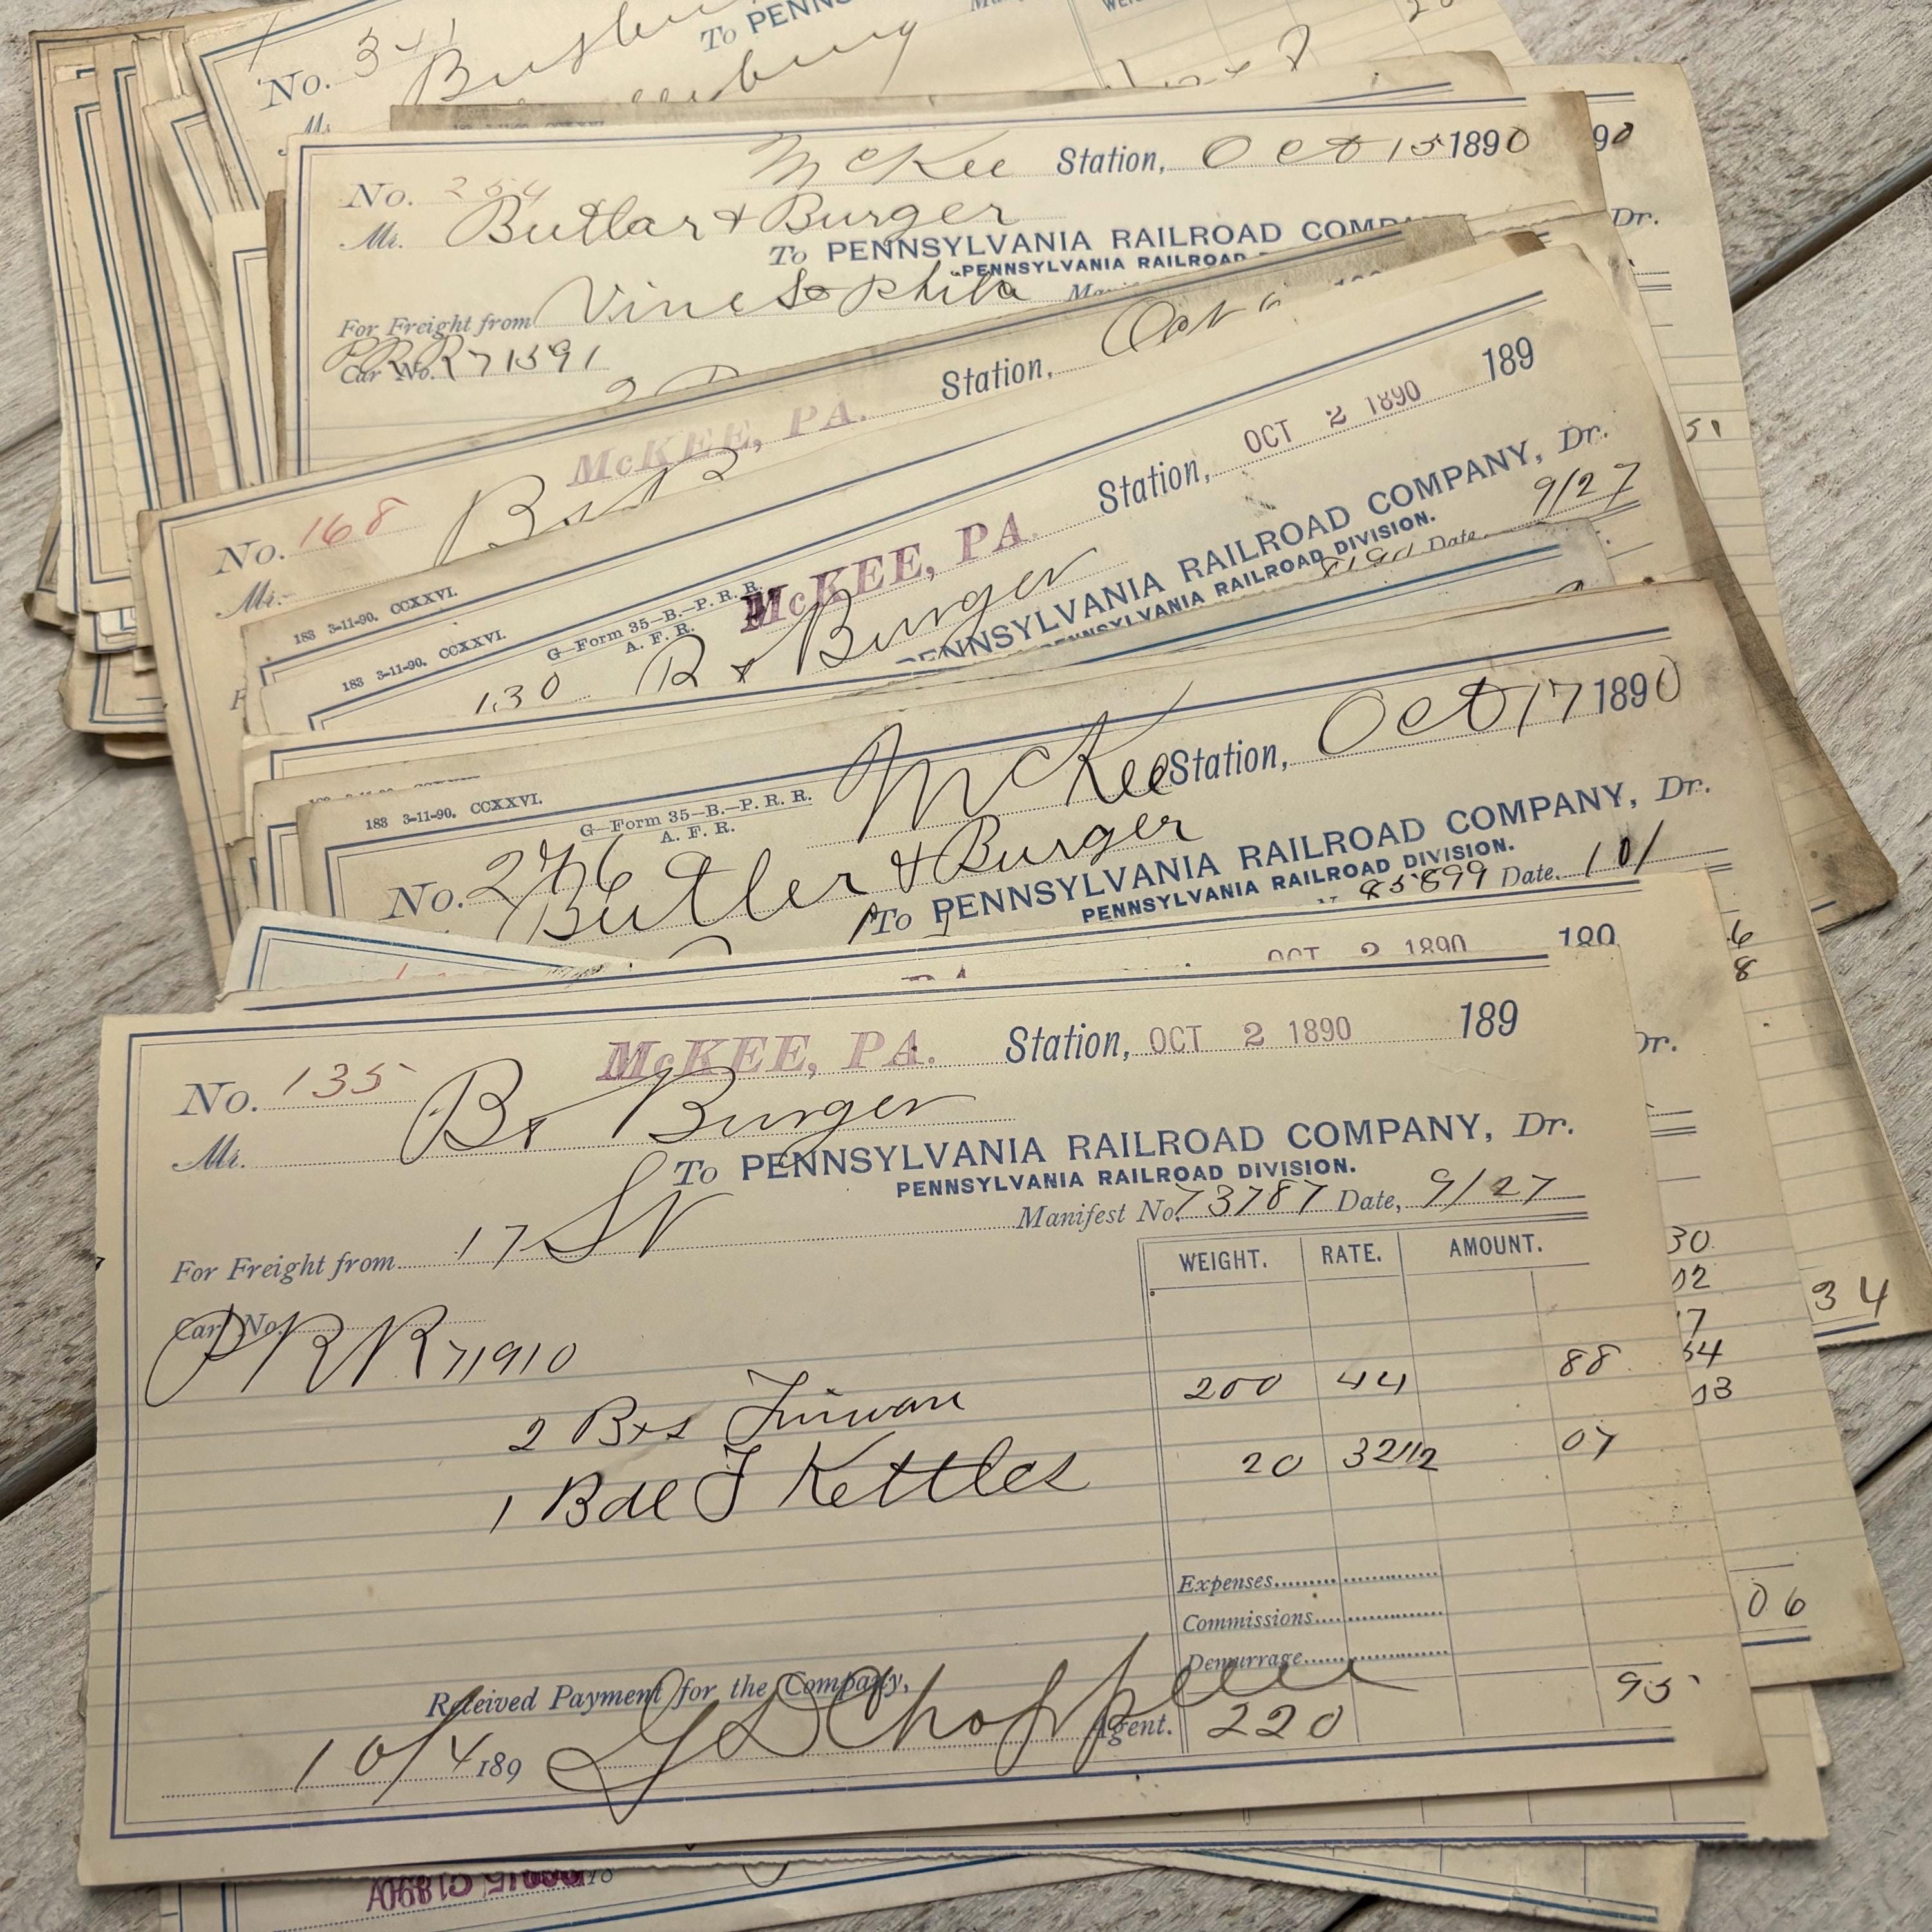 No. 341
To PENNS
No. 254 McKee Station, Oct 15 1890
90
Mr. Butlar & Burger
To PENNSYLVANIA RAILROAD COMPA
Dr.
PENNSYLVANIA RAILROAD
For Freight from Vine St Phila
Car No. PRR 71591
McKEE, PA. Station, Oct
No. 168
Mr.
51
183 3-11-90. CCXXVI.
McKEE, PA. Station, OCT 2 1890 189
183 3-11-90. CCXXVI.
G—Form 35—B.—P. R. R.
A. F. R.
130 B & Burger
PENNSYLVANIA RAILROAD COMPANY, Dr.
PENNSYLVANIA RAILROAD DIVISION.
Date, 9/27
PENNSYLVANIA RAILROAD
183 3-11-90. CCXXVI.
G—Form 35—B.—P. R. R.
A. F. R.
McKee Station, Oct 17 1890
No. 276 Butler & Burger
To PENNSYLVANIA RAILROAD COMPANY, Dr.
PENNSYLVANIA RAILROAD DIVISION.
85899 Date, 10/
6
8
OCT 2 1890 189
McKEE, PA. Station, OCT 2 1890 189
Dr.
No. 135
Mr. B & Burger
To PENNSYLVANIA RAILROAD COMPANY, Dr.
PENNSYLVANIA RAILROAD DIVISION.
Manifest No. 73787 Date, 9/27
For Freight from 17 St
WEIGHT. RATE. AMOUNT.
30
02
34
Car No. PRR 71910
7
54
03
2 Bxs Tinware 200 44 88
1 Bdl F Kettles 20 32 1/2 07
Expenses
Commissions
06
Demurrage
Received Payment for the Company,
95
10/4 189 Agent. 220